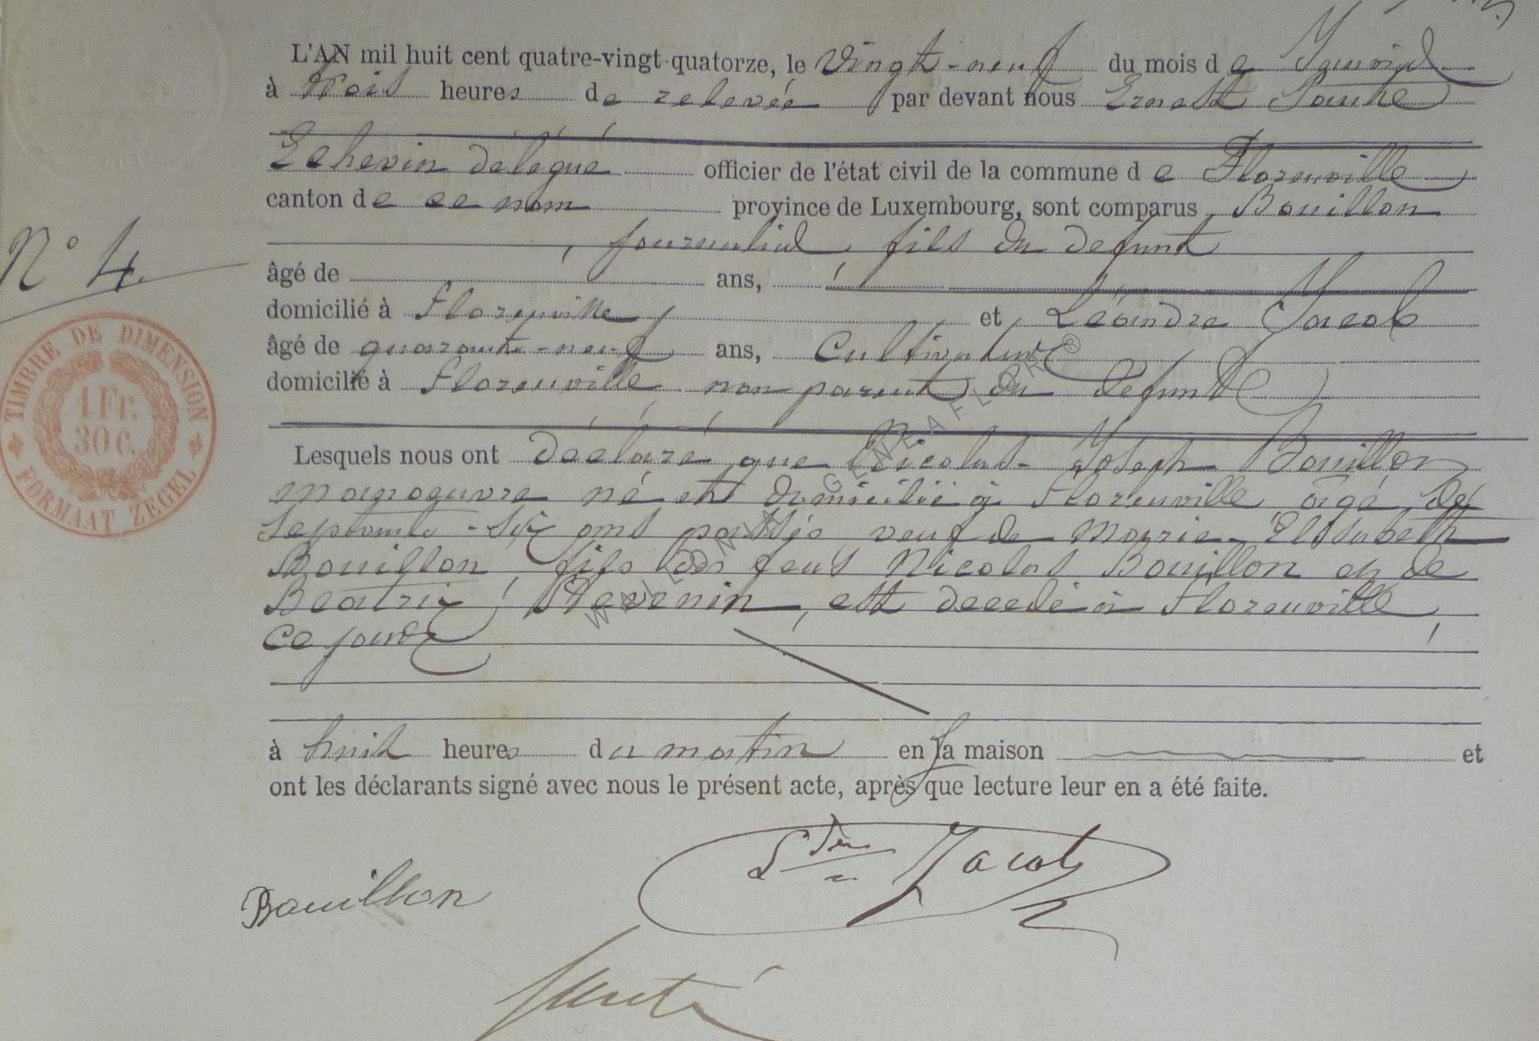 L'AN mil huit cent quatre-vingt-quatorze, le vingt-neuf du mois d e Janvier
à trois heures de relevée par devant nous Ernest
Echevin délégué officier de l'état civil de la commune d e Florenville
canton de ce nom province de Luxembourg, sont comparus Bouillon
, journalier, fils du defunt
âgé de ans,
domicilié à Florenville et Léandre Jacob
âgé de quarante-neuf ans, Cultivateur
domicilié à Florenville non parent du defunt
N° 4.
TIMBRE DE DIMENSION
1 Fr.
30 C.
FORMAAT ZEGEL
Lesquels nous ont déclaré que Nicolas-Joseph Bouillon
manoeuvre né et domicilié à Florenville âgé de
septante-six ans passés veuf de Marie-Elisabeth
Bouillon, fils des feus Nicolas Bouillon et de
Béatrix Stevenin, est décédé à Florenville,
ce jour
à huit heures du matin en sa maison et
ont les déclarants signé avec nous le présent acte, après que lecture leur en a été faite.
Jacob
Bouillon